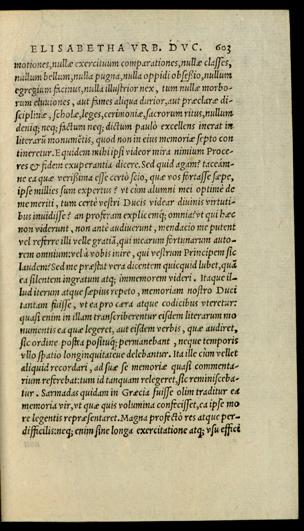 ELISABETHA VRB. DVC. 603
motiones, nullæ exercituum comparationes, nullæ classes,
nullum bellum, nulla pugna, nulla oppidi obseßio, nullum
egregium facinus, nulla illustrior nex, tum nullæ morbo-
rum eluuiones, aut fames aliqua durior, aut præclaræ di-
sciplinæ, scholæ, leges, cerimoniæ, sacrorum ritus, nullum
deniq; neq; factum neq; dictum paulò excellens inerat in
literarū monumētis, quod non in eius memoriæ septo con
tineretur. Equidem mihi ipsi videor mira nimium Proce-
res & fidem exuperantia dicere. Sed quid agam? taceám-
ne ea quæ verißima esse certò scio, quæ vos fortasse sæpe,
ipse millies sum expertus? vt cùm alumni mei optimè de
me meriti, tum certè vestri Ducis videar diuinis virtuti-
bus inuidisse? an proferam explicémq; omnia? vt qui hæc
non viderunt, non antè audiuerunt, mendacio me putent
vel referre illi velle gratiā, qui mearum fortunarum auto-
rem omnium: vel à vobis inire, qui vestrum Principem sic
laudem? Sed me præstat vera dicentem quicquid lubet, quā
ea silentem ingratum atq; immemorem videri. Itaque il-
lud iterum atque sæpius repeto, memoriam nostro Duci
tantam fuisse, vt ea pro cæra atque codicibus vteretur:
quasi enim in illam transcriberentur eisdem literarum mo
numentis ea quæ legeret, aut eisdem verbis, quæ audiret,
sic ordine postra positúq; permanebant, neque temporis
vllo spatio longinquitatéue delebantur. Ita ille cùm vellet
aliquid recordari, ad suæ se memoriæ quasi commenta-
rium referebat: tum id tanquam relegeret, sic reminisceba-
tur. Sarmadas quidam in Græcia fuisse olim traditur ea
memoria vir, vt quæ quis volumina confecisset, ea ipse mo
re legentis repræsentaret. Magna profectò res atque per-
difficilis: neq; enim sine longa exercitatione atq; vsu effici